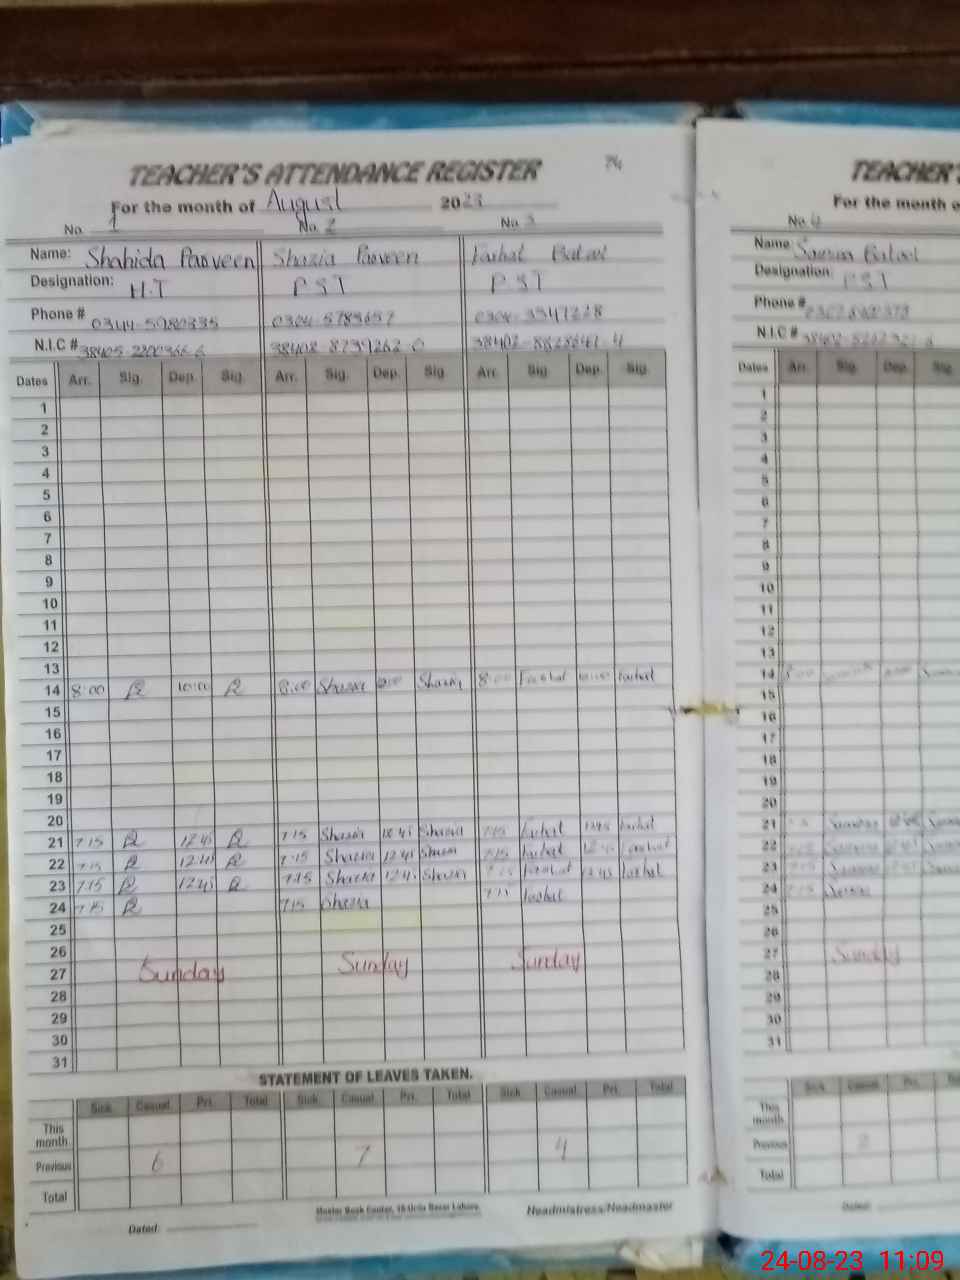 TEACHER'S ATTENDANCE REGISTER 74
For the month of August 2023
No. 1 No. 2 No. 3
Name: Shahida Parveen Shazia Parveen Farhat Batool
Designation: H.T PST PST
Phone # 0344-5980335 0304-5783657 0304-3347228
N.I.C # 38405-2200366-6 38402-8739262-0 38402-8828641-4
Dates Arr. Sig. Dep. Sig. Arr. Sig. Dep. Sig Arr. Sig Dep. Sig.
1
2
3
4
5
6
7
8
9
10
11
12
13
14 8:00 10:00 8:00 Shazia 10:00 Shazia 8:00 Farhat 10:00 Farhat
15
16
17
18
19
20
21 7:15 12:45 7:15 Shazia 12:45 Shazia 7:15 Farhat 12:45 Farhat
22 7:15 12:45 7:15 Shazia 12:45 Shazia 7:15 Farhat 12:45 Farhat
23 7:15 12:45 7:15 Shazia 12:45 Shazia 7:15 Farhat 12:45 Farhat
24 7:15 7:15 Shazia 7:15 Farhat
25
26
27 Sunday Sunday Sunday
28
29
30
31
STATEMENT OF LEAVES TAKEN.
Sick Casual Pri. Total Sick Casual Pri. Total Sick Casual Pri. Total
This month
Previous 6 7 4
Total
Dated: Master Book Center, Lahore. Headmistress/Headmaster
TEACHER'S
For the month o
No. 4
Name
Designation: PST
Phone #
N.I.C #
Dates Arr. Sig. Dep. Sig.
1
2
3
4
5
6
7
8
9
10
11
12
13
14 8:00
15
16
17
18
19
20
21
22
23
24 7:15
25
26
27 Sunday
28
29
30
31
Sick Casual Pri.
This month
Previous 2
Total
Dated:
24-08-23 11:09